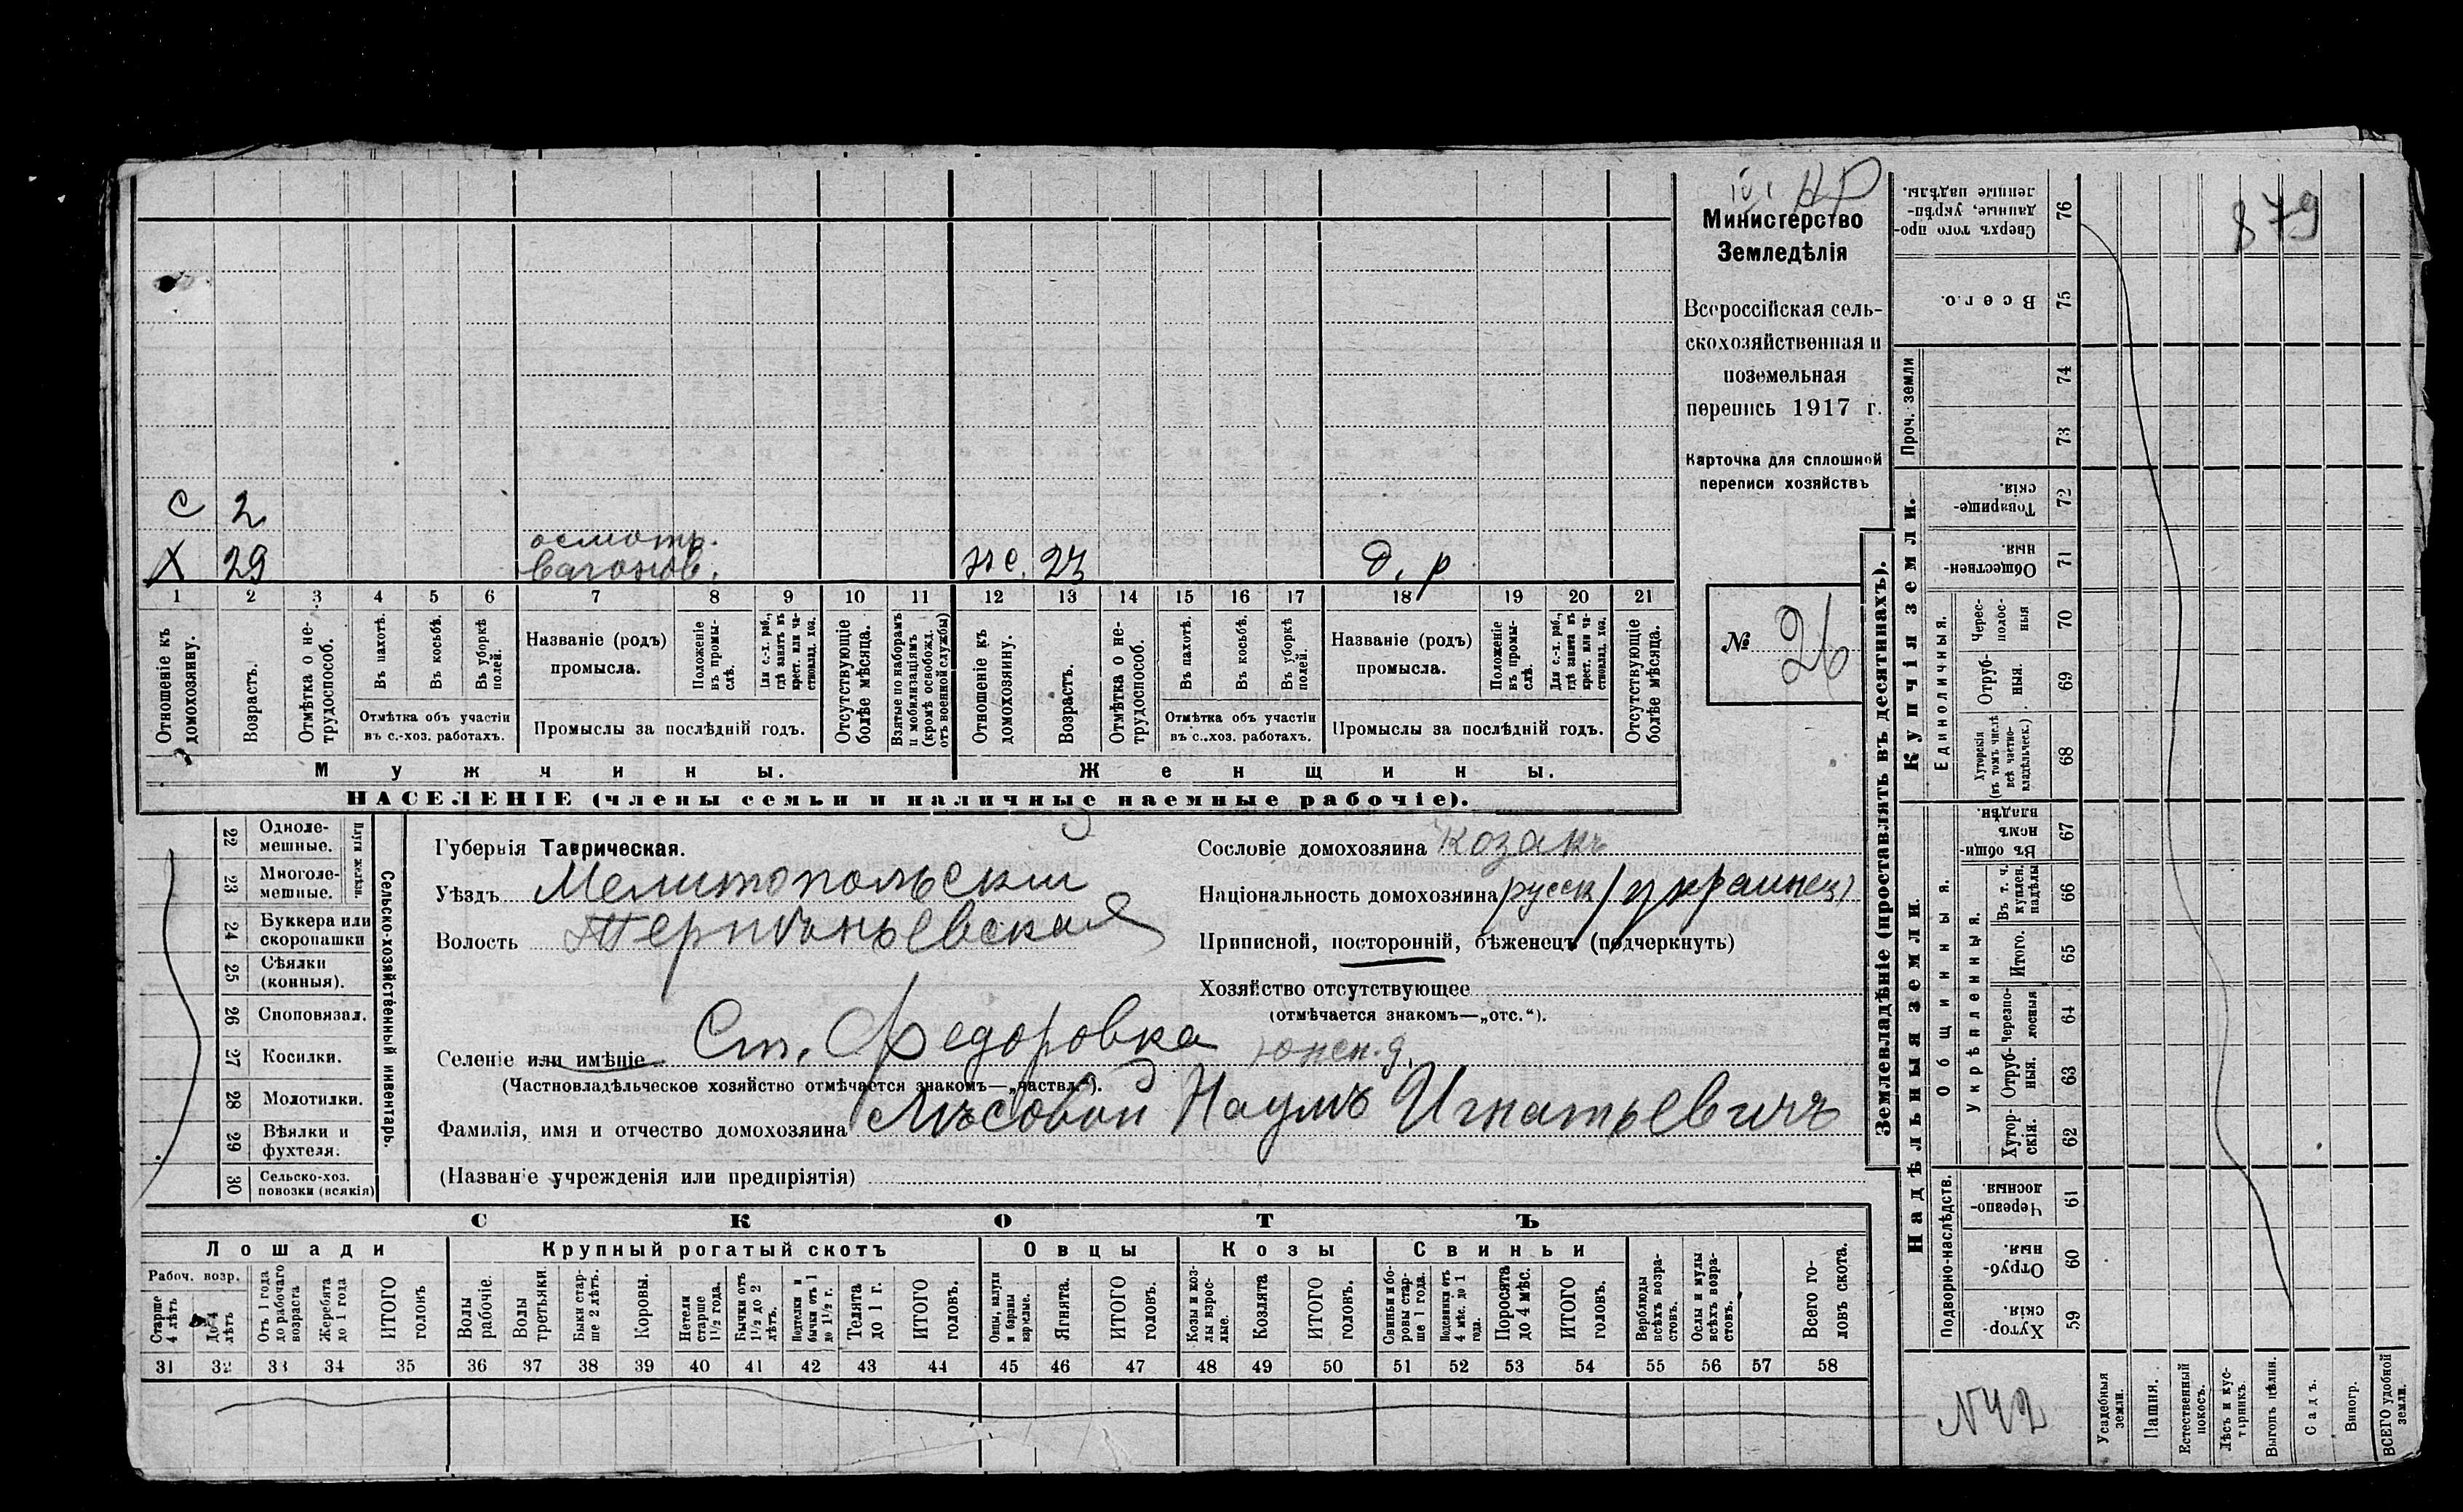 Министерство
Земледѣлія
Всероссійская сель-
скохозяйственная и
поземельная
перепись 1917 г.
Карточка для сплошной
переписи хозяйствъ
№ 26
879
С 2
осмотр.
Х 29 вагонов. же. 23 д. р
1 2 3 4 5 6 7 8 9 10 11 12 13 14 15 16 17 18 19 20 21
Отношеніе къ домохозяину.
Возрастъ.
Отмѣтка о не-трудоспособ.
Въ пахотѣ.
Въ косьбѣ.
Въ уборкѣ полей.
Отмѣтка объ участіи
въ с.-хоз. работахъ.
Названіе (родъ)
промысла.
Положеніе въ промы-слѣ.
Для с.-х. раб., гдѣ занятъ въ крест. или ча-стновлад. хоз.
Промыслы за послѣдній годъ.
Отсутствующіе болѣе мѣсяца.
Взятые по наборамъ и мобилизаціямъ (кромѣ освобожд. отъ военной службы)
Отношеніе къ домохозяину.
Возрастъ.
Отмѣтка о не-трудоспособ.
Въ пахотѣ.
Въ косьбѣ.
Въ уборкѣ полей.
Отмѣтка объ участіи
въ с.-хоз. работахъ.
Названіе (родъ)
промысла.
Положеніе въ промы-слѣ.
Для с.-х. раб., гдѣ занята въ крест. или ча-стновлад. хоз.
Промыслы за послѣдній годъ.
Отсутствующіе болѣе мѣсяца.
Мужчины. Женщины.
НАСЕЛЕНІЕ (члены семьи и наличные наемные рабочіе).
Сельско-хозяйственный инвентарь.
Плуги желѣзн.
22 Одноле-мешные.
23 Многоле-мешные.
24 Буккера или скоропашки
25 Сѣялки (конныя).
26 Споповязал.
27 Косилки.
28 Молотилки.
29 Вѣялки и фухтеля.
30 Сельско-хоз. повозки (всякія)
Губернія Таврическая.
Уѣздъ Мелитопольскій
Волость Терпѣньевская
Селеніе или имѣніе Ст. Федоровка
(Частновладѣльческое хозяйство отмѣчается знакомъ—„частвл.“).
Фамилія, имя и отчество домохозяина Лѣсовой Наумъ Игнатьевичъ
(Названіе учрежденія или предпріятія)
Сословіе домохозяина козакъ
Національность домохозяина русск/украинец)
Приписной, посторонній, бѣженецъ (подчеркнуть)
Хозяйство отсутствующее
(отмѣчается знакомъ—„отс.“).
СКОТЪ
Лошади Крупный рогатый скотъ Овцы Козы Свиньи
Рабоч. возр.
Старше 4 лѣтъ
До 4 лѣтъ
Отъ 1 года до рабочаго возраста
Жеребята до 1 года
ИТОГО головъ
Волы рабочіе.
Волы третьяки.
Быки стар-ше 2 лѣтъ.
Коровы.
Нетели старше 1½ года.
Бычки отъ 1½ до 2 лѣтъ.
Подтелки и бычки отъ 1 до 1½ г.
Телята до 1 г.
ИТОГО головъ.
Овцы, валухи и бараны взрослые.
Ягнята.
ИТОГО головъ.
Козы и коз-лы взрос-лые.
Козлята
ИТОГО головъ.
Свиньи и бо-ровы стар-ше 1 года.
Подсвинки отъ 4 мѣс. до 1 года.
Поросята до 4 мѣс.
ИТОГО головъ.
Верблюды всѣхъ возра-стовъ.
Ослы и мулы всѣхъ возра-стовъ.
Всего го-ловъ скота.
31 32 33 34 35 36 37 38 39 40 41 42 43 44 45 46 47 48 49 50 51 52 53 54 55 56 57 58
Землевладѣніе (проставлять въ десятинахъ).
Купчія земли.
Проч. земли
Надѣльныя земли.
Единоличныя.
Общинныя.
Укрѣпленныя.
Подворно-наслѣдств.
76 Сверхъ того про-данные, укрѣп-ленные надѣлы.
75 Всего.
74
73
72 Товарище-скія.
71 Обществен-ныя
70 Черес-полос-ныя
69 Отруб-ныя.
68 Хуторскія (въ томъ числѣ всѣ частно-владѣльческ.)
67 Въ общи-номъ владѣн.
66 Въ т. ч. куплен. надѣлы
65 Итого.
64 Черезпо-лосныя
63 Отруб-ныя.
62 Хутор-скія.
61 Черезпо-лосныя.
60 Отруб-ныя.
59 Хутор-скія.
N42
Усадебныя земли.
Пашня.
Естественный покосъ.
Лѣсъ и кус-тарникъ.
Выгонъ цѣлин.
Садъ.
Виногр.
ВСЕГО удобной земли.